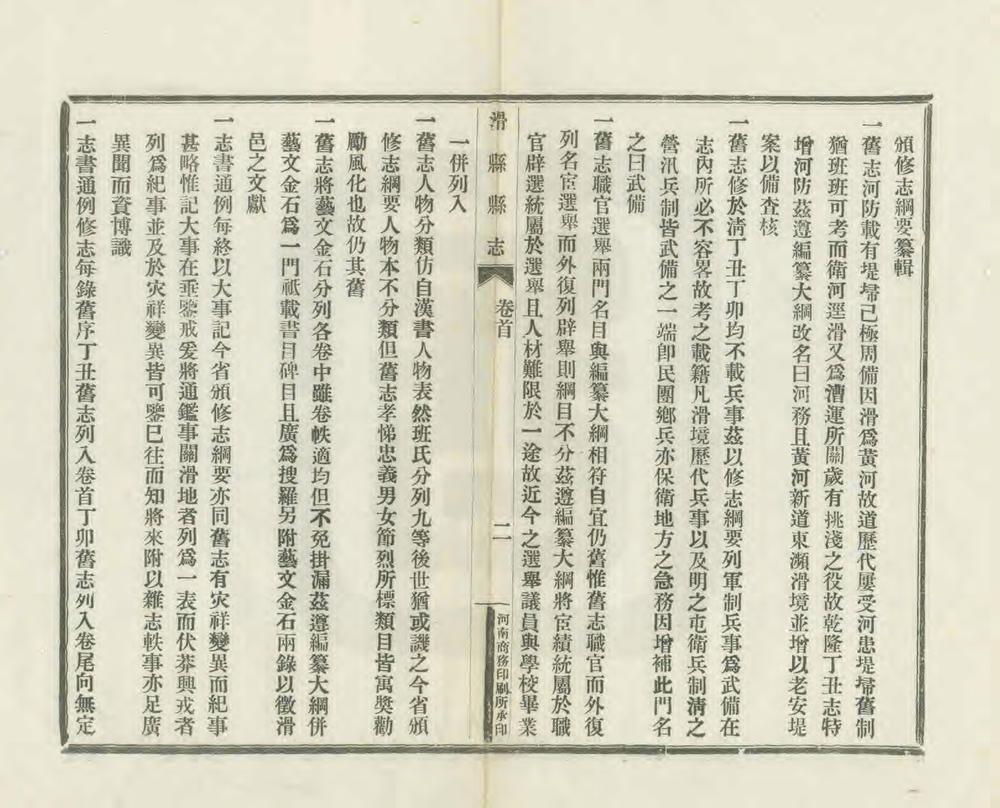 頒修志綱要纂輯
一舊志河防載有堤埽已極周備因滑爲黃河故道歷代屢受河患堤埽舊制
猶班班可考而衛河逕滑又爲漕運所關歲有挑淺之役故乾隆丁丑志特
增河防茲遵編纂大綱改名曰河務且黃河新道東瀕滑境並增以老安堤
案以備查核
一舊志修於淸丁丑丁卯均不載兵事茲以修志綱要列軍制兵事爲武備在
志內所必不容畧故考之載籍凡滑境歷代兵事以及明之屯衛兵制淸之
營汛兵制皆武備之一端卽民團鄉兵亦保衛地方之急務因增補此門名
之曰武備
一舊志職官選舉兩門名目與編纂大綱相符自宜仍舊惟舊志職官而外復
列名宦選舉而外復列辟舉則綱目不分茲遵編纂大綱將宦績統屬於職
官辟選統屬於選舉且人材難限於一途故近今之選舉議員與學校畢業
滑縣縣志
卷首
二
河南商務印刷所承印
一併列入
一舊志人物分類仿自漢書人物表然班氏分列九等後世猶或譏之今省頒
修志綱要人物本不分類但舊志孝悌忠義男女節烈所標類目皆寓獎勸
勵風化也故仍其舊
一舊志將藝文金石分列各卷中雖卷帙適均但不免掛漏茲遵編纂大綱併
藝文金石爲一門祗載書目碑目且廣爲搜羅另附藝文金石兩錄以徵滑
邑之文獻
一志書通例每終以大事記今省頒修志綱要亦同舊志有灾祥變異而紀事
甚略惟記大事在垂鑒戒爰將通鑑事關滑地者列爲一表而伏莽興戎者
列爲紀事並及於灾祥變異皆可鑒已往而知將來附以雜志軼事亦足廣
異聞而資博識
一志書通例修志每錄舊序丁丑舊志列入卷首丁卯舊志列入卷尾向無定